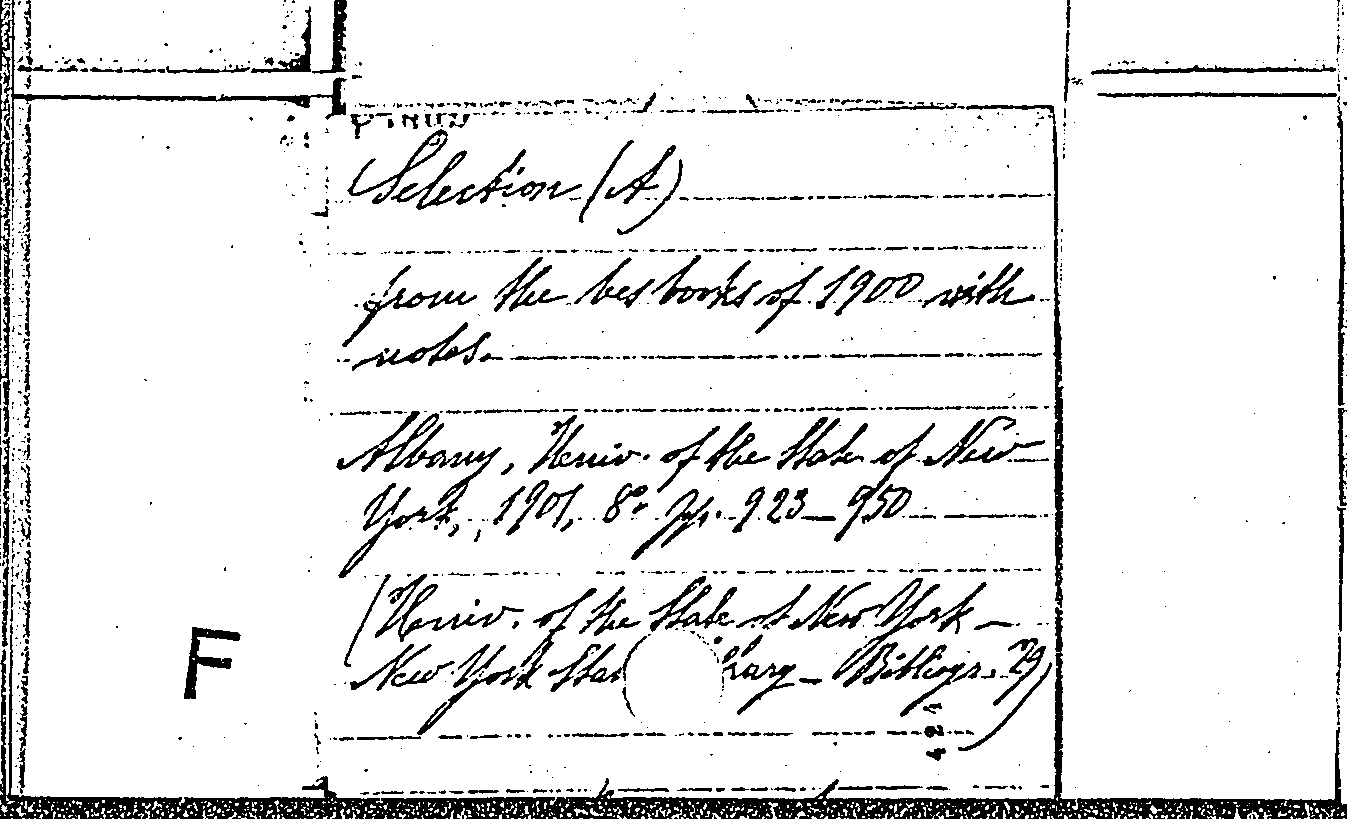 Selection (A)
from the bes books of 1900 with
notes.
Albany, Univ. of the State of New
York, 1901, 8° pp. 923_950
(Univ. of the State of New York _
New York Stat rary _ Bibliogr. 29)
421
F